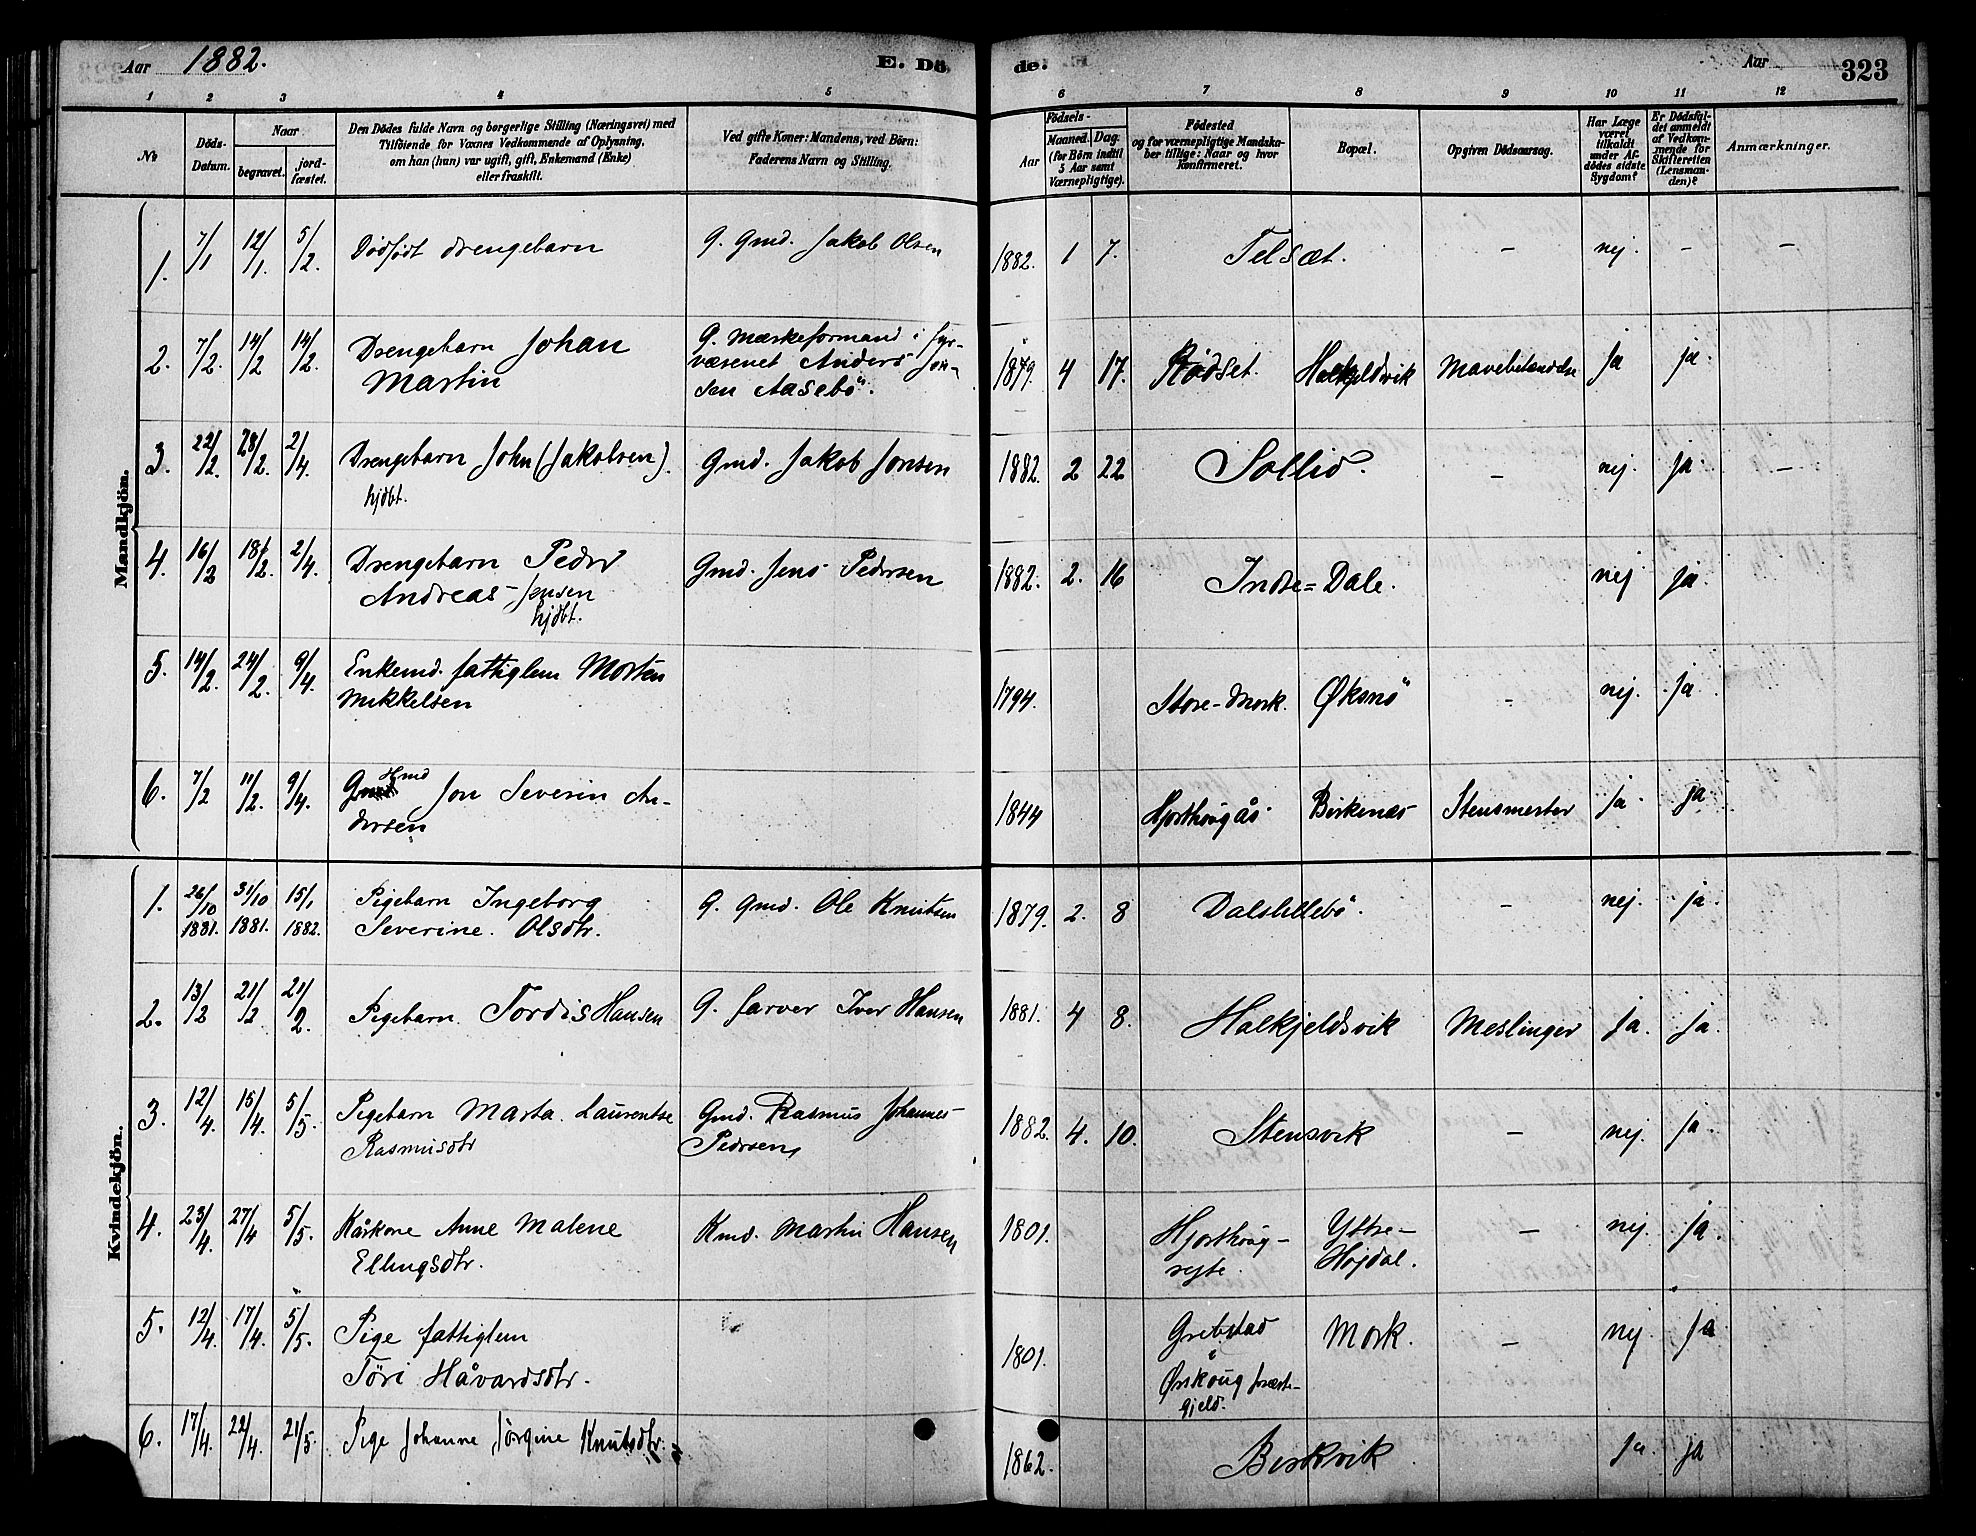 Aar 1882. E. Dö de. Aar 323
1 2 3 4 5 6 7 8 9 10 11 12
No
Döds-
Datum.
Naar
begravet.
jord-
fæstet.
Den Dödes fulde Navn og borgerlige Stilling (Næringsvei) med
Tilföiende for Voxnes Vedkommende af Oplysning,
om han (hun) var ugift, gift, Enkemand (Enke)
eller fraskilt.
Ved gifte Koner: Mandens, ved Börn:
Faderens Navn og Stilling.
Födsels-
Aar
Maaned. Dag.
(for Börn indtil
5 Aar samt
Værnepligtige).
Födested
og for værnepligtige Mandska-
ber tillige: Naar og hvor
Konfirmeret.
Bopæl.
Opgiven Dödsaarsag.
Har Læge
været
tilkaldt
under Af-
dödes sidste
Sygdom?
Er Dödsfal-
det anmeldt
af Vedkom-
mende for
Skifteretten
(Lensman-
den)?
Anmærkninger.
Mandkjön.
1. 7/1 12/1. 5/2. Dödfödt drengebarn G. Gmd. Jakob Olsen 1882. 1 7. Telsæt. - nej. - -
2. 7/2. 14/2 14/2. Drengebarn Johan
Martin
G. Mærkeformand i fyr-
væsenet Anders Jon-
sen Aasebö.
1879 4 17. Rödset. Halkjeldsvik Mavebetændelse ja ja.
3. 22/2. 28/2. 2/4. Drengebarn John (Jakobsen).
hjdbt.
Gmd. Jakob Jonsen 1882. 2 22 Sollid. - nej. ja. -
4. 16/2 18/2. 2/4. Drengebarn Peder
Andreas Jensen
hjdbt.
Gmd. Jens Pedersen 1882. 2. 16 Indre=Dale. nej ja.
5. 14/2. 24/2. 9/4. Enkemd. fattiglem Morten
Mikkelsen
1794. Store-Mork. Øksnö - nej. ja.
6. 7/2 11/2. 9/4. Hmd
Jon Severin An-
dersen
1844 Hjorthöugås Birkenæs Stensmerter ja. ja.
Kvindekjön.
1. 26/10 1881. 31/10 1881. 15/1 1882. Pigebarn Ingeborg
Severine. Olsdtr.
G. Gmd. Ole Knutsen 1879. 2. 8 Dalslillebö. - nej. ja.
2. 13/2 21/2 21/2. Pigebarn. Tordis Hansen G. farver Iver Hansen 1881. 4 8. Halkjeldsvik Meslinger ja. ja.
3. 12/4. 15/4. 5/5. Pigebarn Marta Laurentse
Rasmusdtr
Gmd. Rasmus Johannes
Pedersen
1882. 4. 10. Stensvik - nej. ja.
4. 23/4. 27/4 5/5. Kårkone Anne Malene
Ellingsdtr.
Kmd. Martin Hansen 1801. Hjorthöug-
sæte.
Yttre-
Höjdal.
- nej. ja.
5. 12/4. 17/4. 5/5. Pige fattiglem
Töri Håvardsdtr.
1801. Grebstad
i
Ørskoug præste-
gjeld.
Mork. - nej. ja
6. 17/4. 22/4. 21/5. Pige Johanne Jörgine Knutsdtr. 1862. Birkvik ja. ja